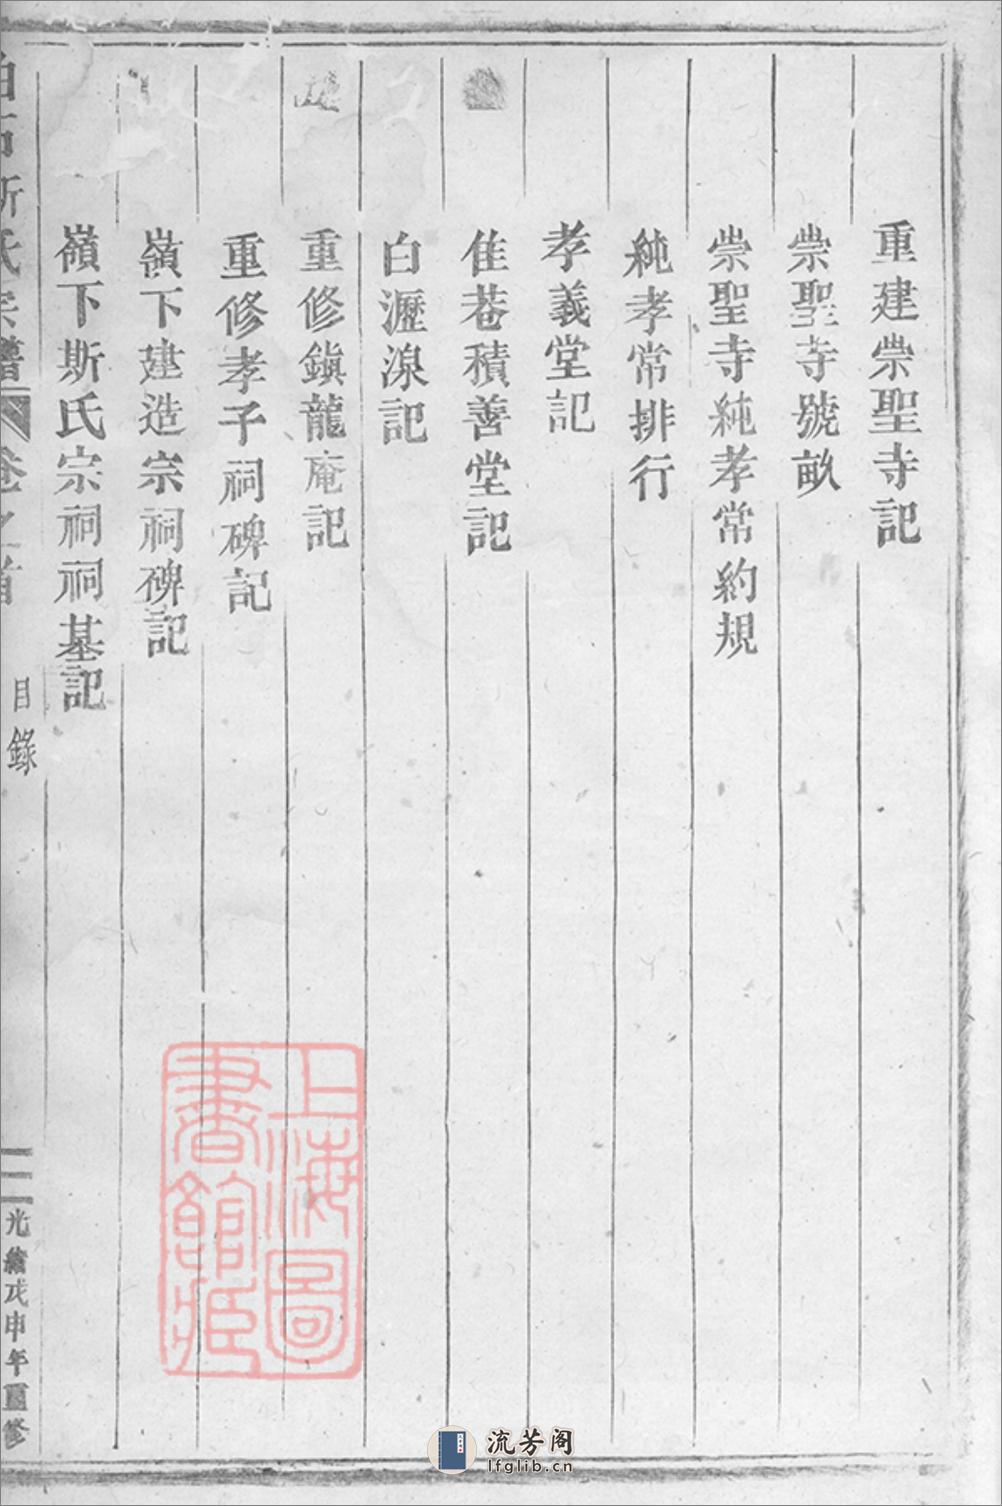 重建崇聖寺記
崇聖寺號畝
崇聖寺純孝常約規
純孝常排行
孝義堂記
隹巷積善堂記
白瀝湶記
重修鎭龍庵記
重修孝子祠碑記
嶺下建造宗祠碑記
嶺下斯氏宗祠祠基記
斯氏宗譜
卷之首
目錄
二
光緒戊申年重修
上海圖書館藏
流芳阁
lfglib.cn